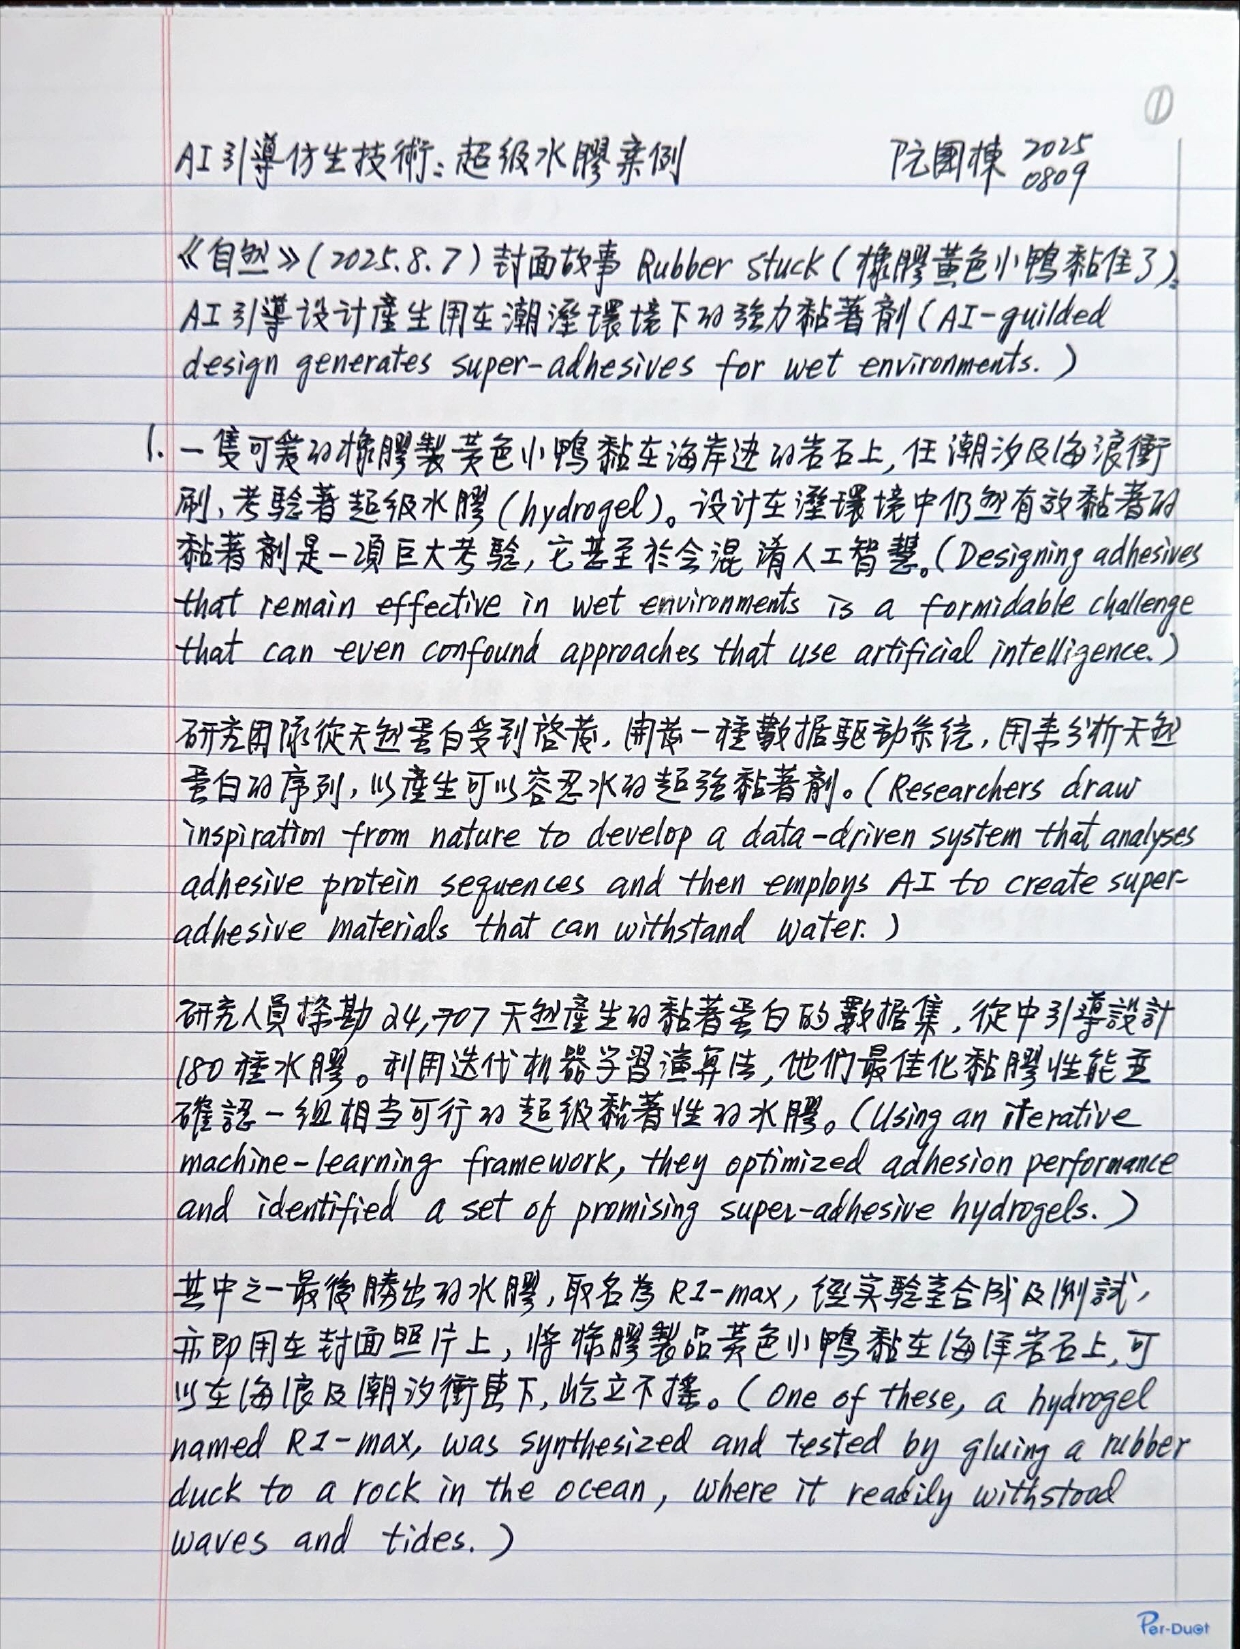 ①
AI引導仿生技術：超级水膠案例 阮國棟 2025
0809
《自然》(2025.8.7) 封面故事 Rubber stuck (橡膠黃色小鴨黏住了)。
AI引導设计產生用在潮溼環境下的強力黏著劑 (AI-guilded
design generates super-adhesives for wet environments.)
1. 一隻可爱的橡膠製黃色小鴨黏在海岸边的岩石上，任潮汐及海浪衝
刷，考驗著超级水膠 (hydrogel)。设计在溼環境中仍然有效黏著的
黏著劑是一項巨大考驗，它甚至於会混淆人工智慧。(Designing adhesives
that remain effective in wet environments is a formidable challenge
that can even confound approaches that use artificial intelligence.)
研究团隊從天然蛋白受到啓发，開发一種數据驱动系统，用来分析天然
蛋白的序列，以產生可以容忍水的超強黏著劑。(Researchers draw
inspiration from nature to develop a data-driven system that analyses
adhesive protein sequences and then employs AI to create super-
adhesive materials that can withstand water.)
研究人員探勘 24,707 天然產生的黏著蛋白的數据集，從中引導設計
180種水膠。利用迭代机器学習演算法，他们最佳化黏膠性能並
確認一组相当可行的超级黏著性的水膠。(Using an iterative
machine-learning framework, they optimized adhesion performance
and identified a set of promising super-adhesive hydrogels.)
其中之一最後勝出的水膠，取名為 R1-max，經实驗室合成及測試，
亦即用在封面照片上，將橡膠製品黃色小鴨黏在海洋岩石上，可
以在海浪及潮汐衝擊下，屹立不搖。(One of these, a hydrogel
named R1-max, was synthesized and tested by gluing a rubber
duck to a rock in the ocean, where it readily withstood
waves and tides.)
Per-Duet